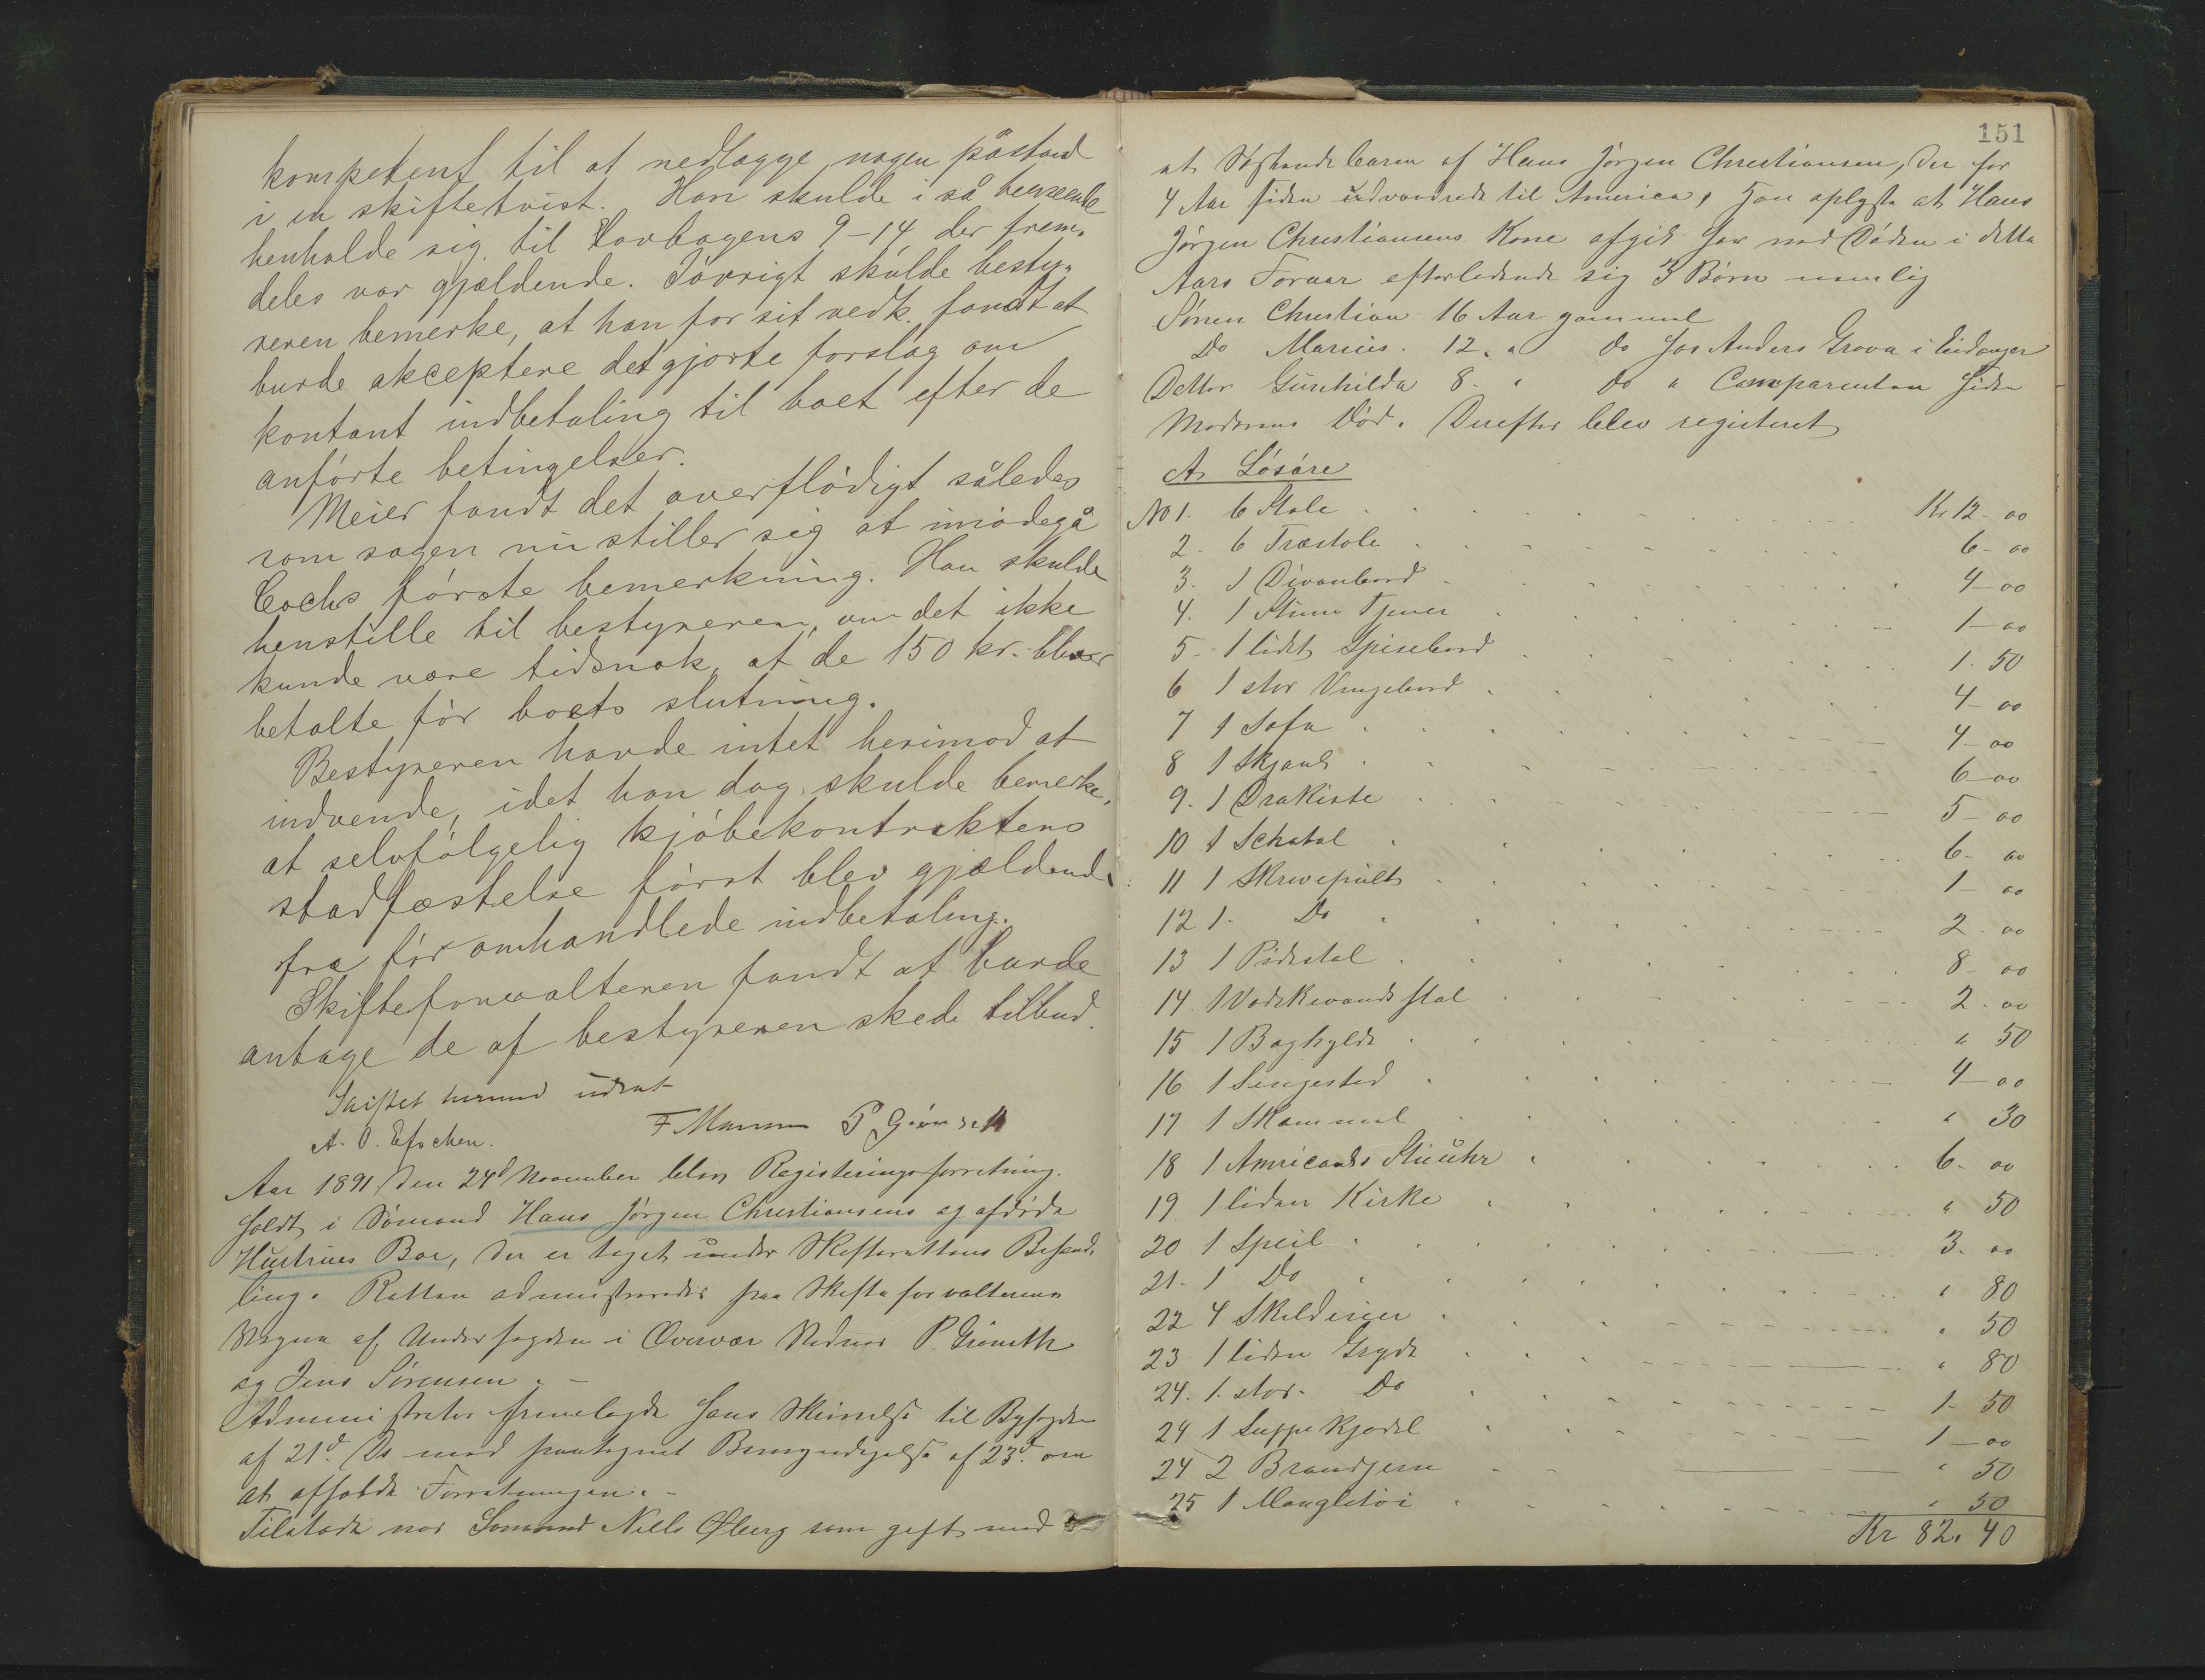 kompetent til at nedlægge nogen påstand
i en skiftetvist. Han skulde i så henseende
henholde sig til Lovbogens 9-14 der frem-
deles var gjældende. Iøvrigt skulde besty-
reren bemerke, at han for sit vedk. fandt at
burde akceptere det gjorte forslag om
kontant indbetaling til boet efter de
anførte betingelser.
Meier fandt det overflødigt således
som sagen nu stiller sig at imødegå
Cochs første bemerkning. Han skulde
henstille til bestyreren, om det ikke
kunde være tidsnok, at de 150 kr. blever
betalte før boets slutning.
Bestyreren havde intet herimod at
indvende, idet han dog skulde bemerke,
at selvfølgelig kjøbekontraktens
stadfæstelse først blev gjældende
fra før omhandlede indbetaling.
Skifteforvalteren fandt at burde
antage de af bestyreren skede tilbud.
Skiftet hermed udsat
F Mamen P Grønseth
A. O. Efschen.
Aar 1891 den 24d November blev Registeringsforretning
holdt i Sømand Hans Jørgen Christiansens og afdøde
Hustrues Boe, der er taget under Skifterettens Behand-
ling. Retten administreredes paa Skifteforvalterens
Vegne af Underfogden i Overvær Vidner P. Grönseth
og Jens Sörensen. -
Administrator fremlagde hans Skrivelse til Byfogden
af 21d. Ds med paategnet Bemyndigelse af 23d. om
at afholde Forretningen. -
Tilstede var Sømand Niels Øberg som gift med
151
et Søskendebarn af Hans Jørgen Christiansen, der for
4 Aar siden udvandrede til America, han oplyste at Hans
Jørgen Christiansens Kone afgik her ved Døden i dette
Aars Foraar efterladende sig 3 Børn nemlig
Sønen Christian 16 Aar gammel
Do Marius. 12. " do hos Anders Grova i Eidanger
Datter Gunhilda 8. " do " Comparenten siden
Moderens Død. Derefter blev registeret
A. Løsøre
No 1. 6 Stole Kr 12 - 00
2. 6 Træstole 6 - 00
3. 1 Divanbord 4 - 00
4. 1 Stum Tjener 1 - 00
5 - 1 lidet Spisebord 1. 50
6 1 stor Vingebord 4 - 00
7 1 Sofa 4 - 00
8 1 Skjænk 6 - 00
9. 1 Dra Kiste 5 - 00
10 1 Schatol 6 - 00
11 1 Skrivepult 1 - 00
12 1. Do 2 - 00
13 1 Pidestal 8 - 00
14 1 Vadskevandsstol 2 - 00
15 1 Boghylde " 50
16 1 Sengested 4 - 00
17 1 Skammel " 30
18 1 Americansk Stueuhr 6 - 00
19 1 liden Kirke " 50
20 1 Speil 3 - 00
21 - 1 Do " 80
22 4 Skilderier " 50
23 1 liden Gryde " 80
24. 1. stor - Do 1 - 50
24 1 Suppekjedel 1 - 00
24 2 Brandjern " 50
25 1 Mangletøi " 50
Kr 82. 40